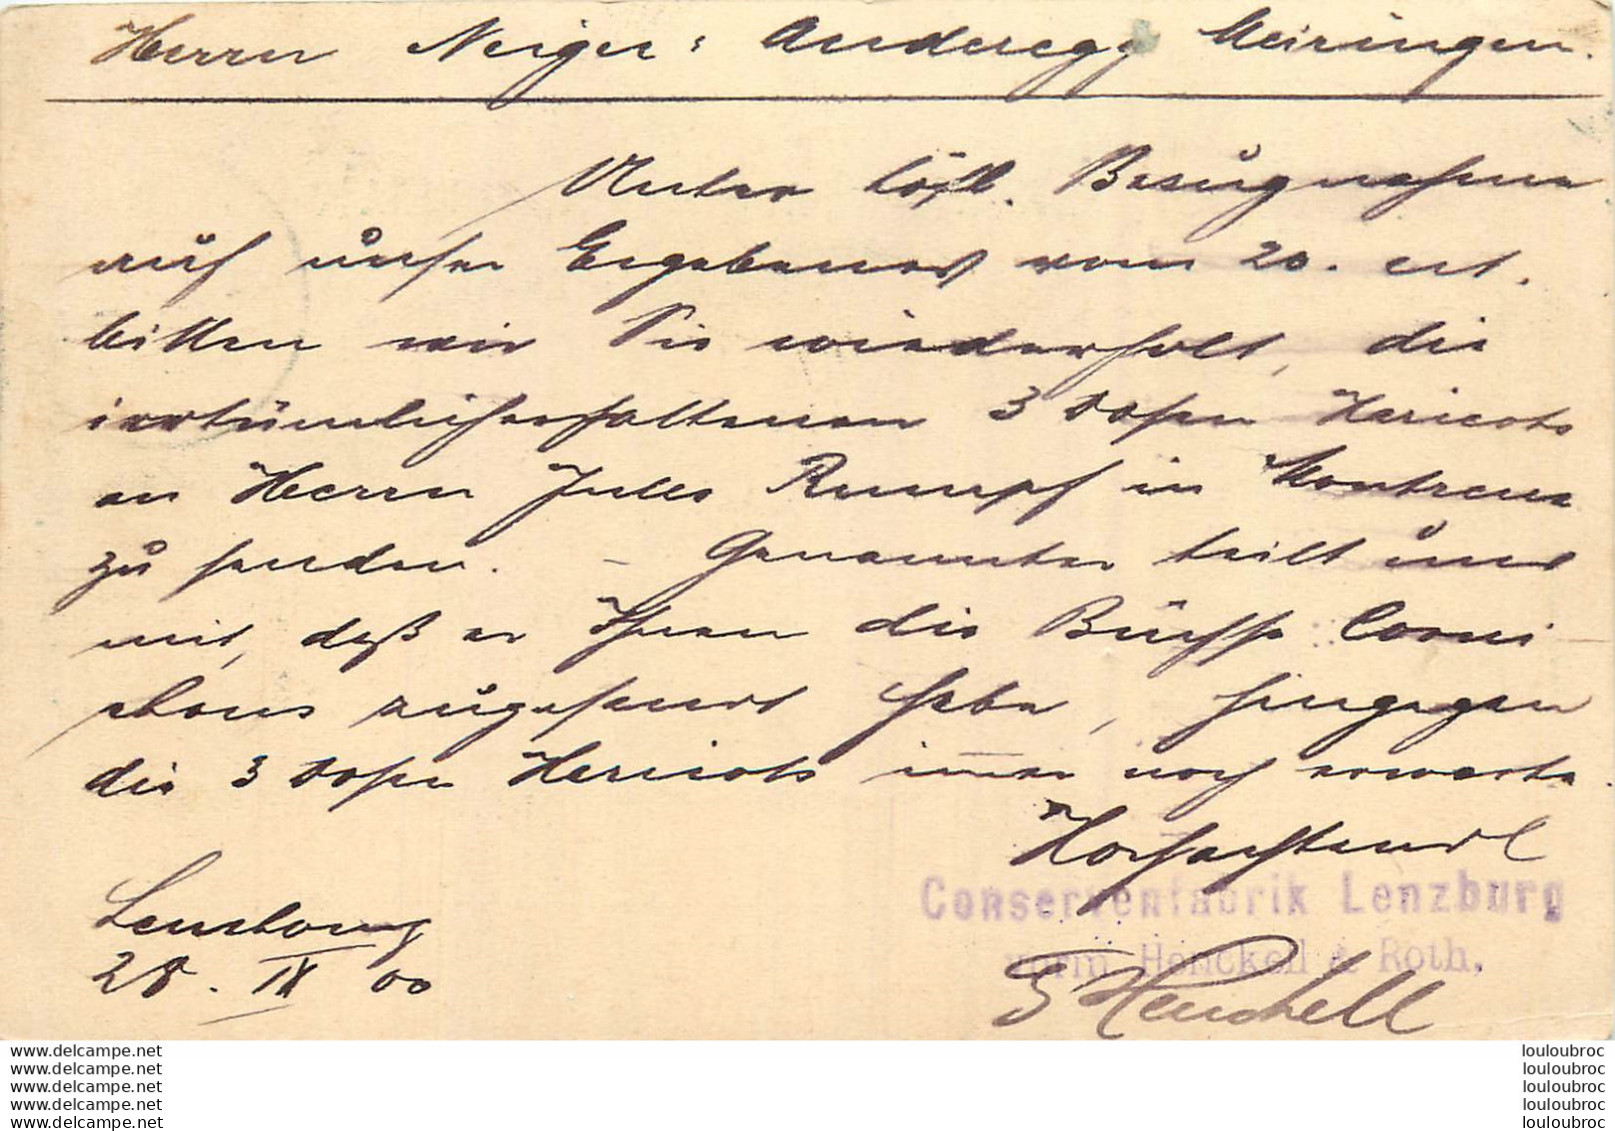 Herrn Neiger-Anderegg Meiringen.
Unter höfl. Bezugnahme
auf unser Ergebenes vom 20. crt.
bitten wir Sie wiederholt, die
irrtümlicherhaltenen 3 Dosen Haricots
an Herrn Jules Rumpf in Montreux
zu senden. – Genannter teilt uns
mit, daß er Ihnen die Büchse Corni
chons zugesandt habe, hingegen
die 3 Dosen Haricots immer noch erwarte.
Hochachtend
Conservenfabrik Lenzburg
vorm. Henckell & Roth.
Lenzburg
28. IX 00
G Henckell
www.delcampe.net
www.delcampe.net
www.delcampe.net
www.delcampe.net
www.delcampe.net
louloubroc
louloubroc
louloubroc
louloubroc
louloubroc